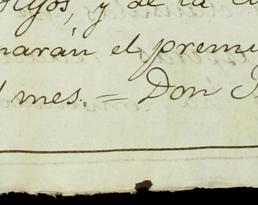 hijos, y de la
narán el premi
l mes. = Don